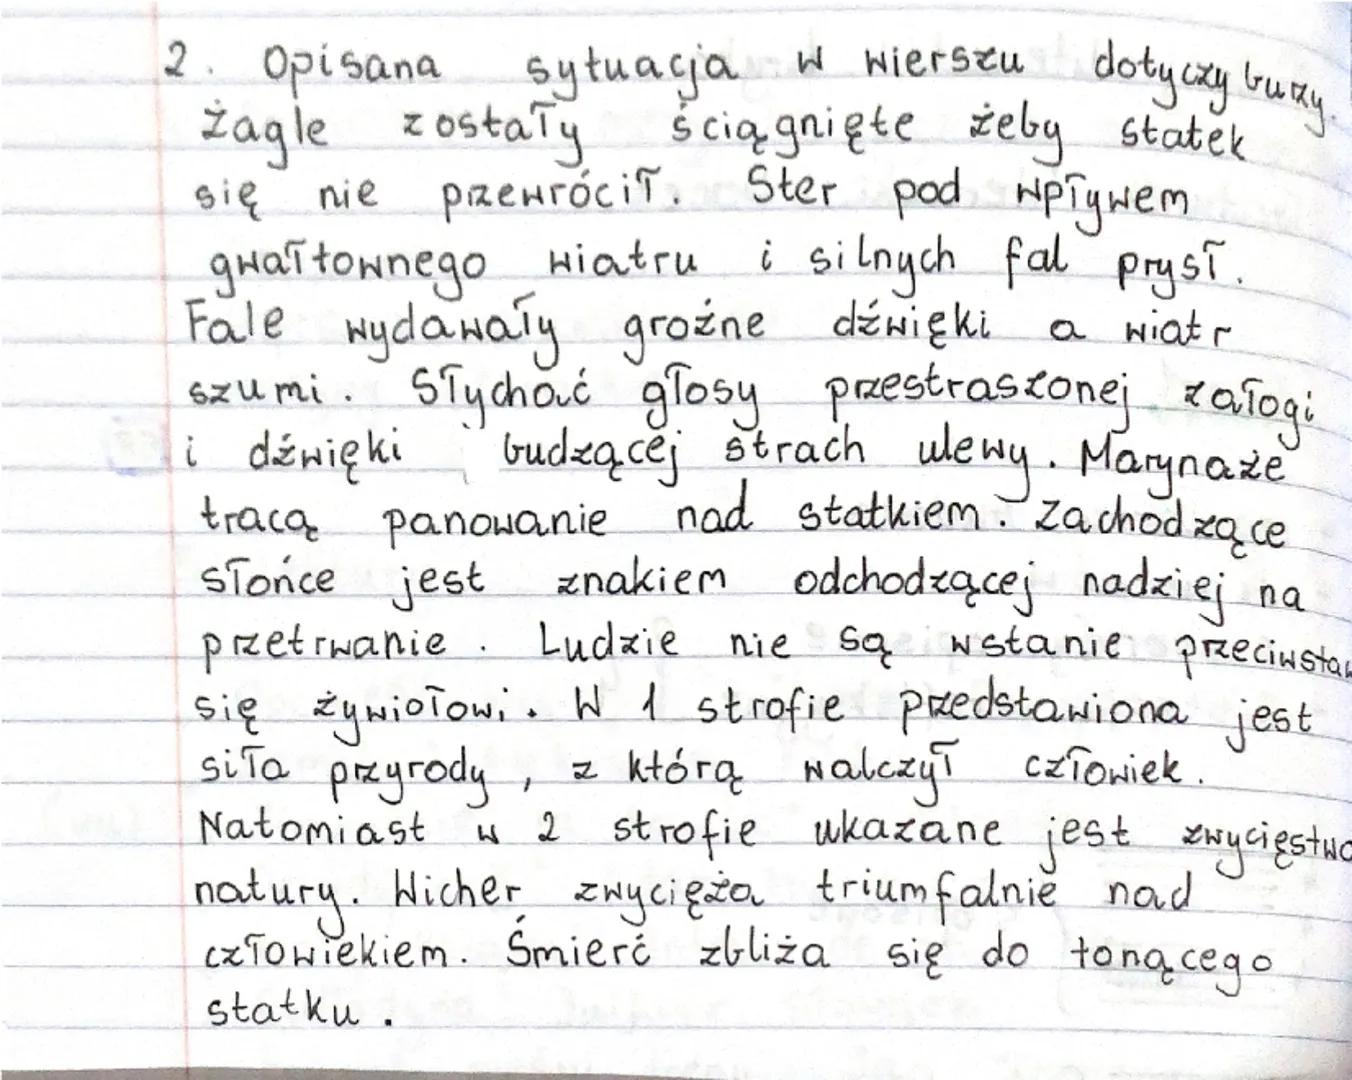 2. Opisana sytuacja w wierszu dotyczy burzy.
żagle zostały ściągnięte żeby statek
się nie przewrócił. Ster pod wpływem
gwałtownego wiatru i silnych fal prysł.
Fale wydawały groźne dźwięki a wiatr
szumi. Słychać głosy przestraszonej załogi
i dźwięki budzącej strach ulewy. Marynaże
tracą panowanie nad statkiem. Zachodzące
słońce jest znakiem odchodzącej nadziej na
przetrwanie. Ludzie nie są wstanie przeciwstaw
się żywiołowi. W 1 strofie przedstawiona jest
siła przyrody, z którą walczył człowiek.
Natomiast w 2 strofie ukazane jest zwycięstwo
natury. Wicher zwycięża triumfalnie nad
człowiekiem. Śmierć zbliża się do tonącego
statku.